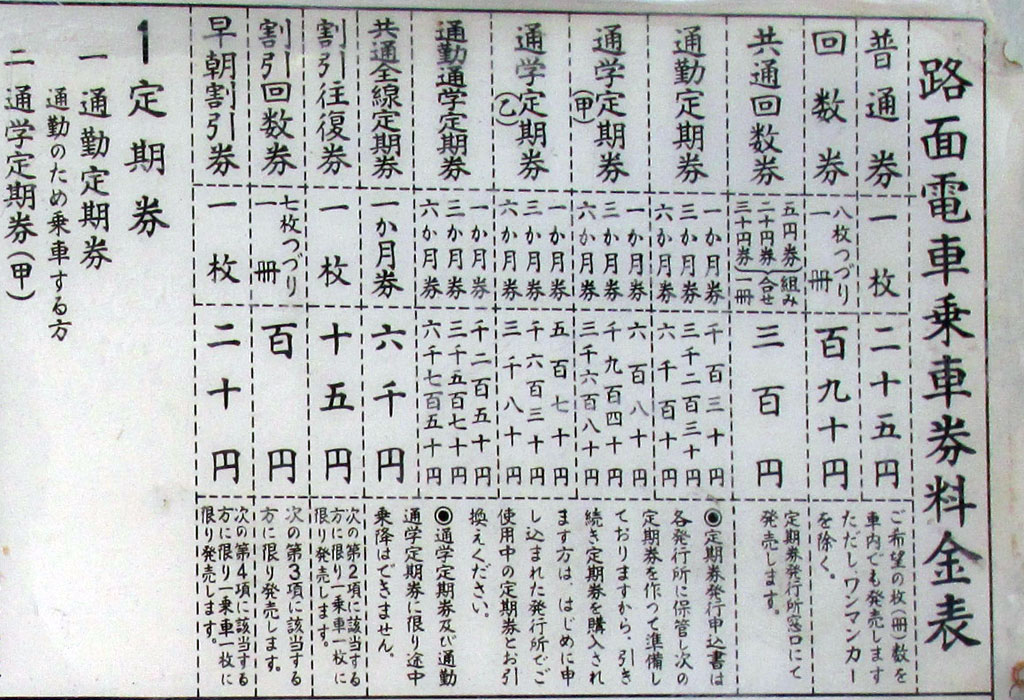 路面電車乗車券料金表
普通券
一枚
二十五円
ご希望の枚(冊)数を
車内でも発売します
ただし、ワンマンカー
を除く。
回数券
八枚つづり
一冊
百九十円
共通回数券
五円券
二十円券
三十円券
組み
合せ
一冊
三百円
定期券発行所窓口にて
発売します。
通勤定期券
一か月券
三か月券
六か月券
千百三十円
三千二百三十円
六千百十円
通学定期券
(甲)
一か月券
三か月券
六か月券
六百八十円
千九百四十円
三千六百八十円
通学定期券
(乙)
一か月券
三か月券
六か月券
五百七十円
千六百三十円
三千八十円
通勤通学定期券
一か月券
三か月券
六か月券
千二百五十円
三千五百七十円
六千七百五十円
共通全線定期券
一か月券
六千円
◉定期券発行申込書は
各発行所に保管し次の
定期券を作つて準備し
ておりますから、引き
続き定期券を購入され
ます方は、はじめに申
し込まれた発行所でご
使用中の定期券とお引
換えください。
◉通学定期券及び通勤
通学定期券に限り途中
乗降はできません。
割引往復券
一枚
十五円
次の第2項に該当する
方に限り一乗車一枚に
限り発売します。
割引回数券
七枚つづり
一冊
百円
次の第3項に該当する
方に限り発売します。
早朝割引券
一枚
二十円
次の第4項に該当する
方に限り一乗車一枚に
限り発売します。
1定期券
一 通勤定期券
通勤のため乗車する方
二 通学定期券(甲)